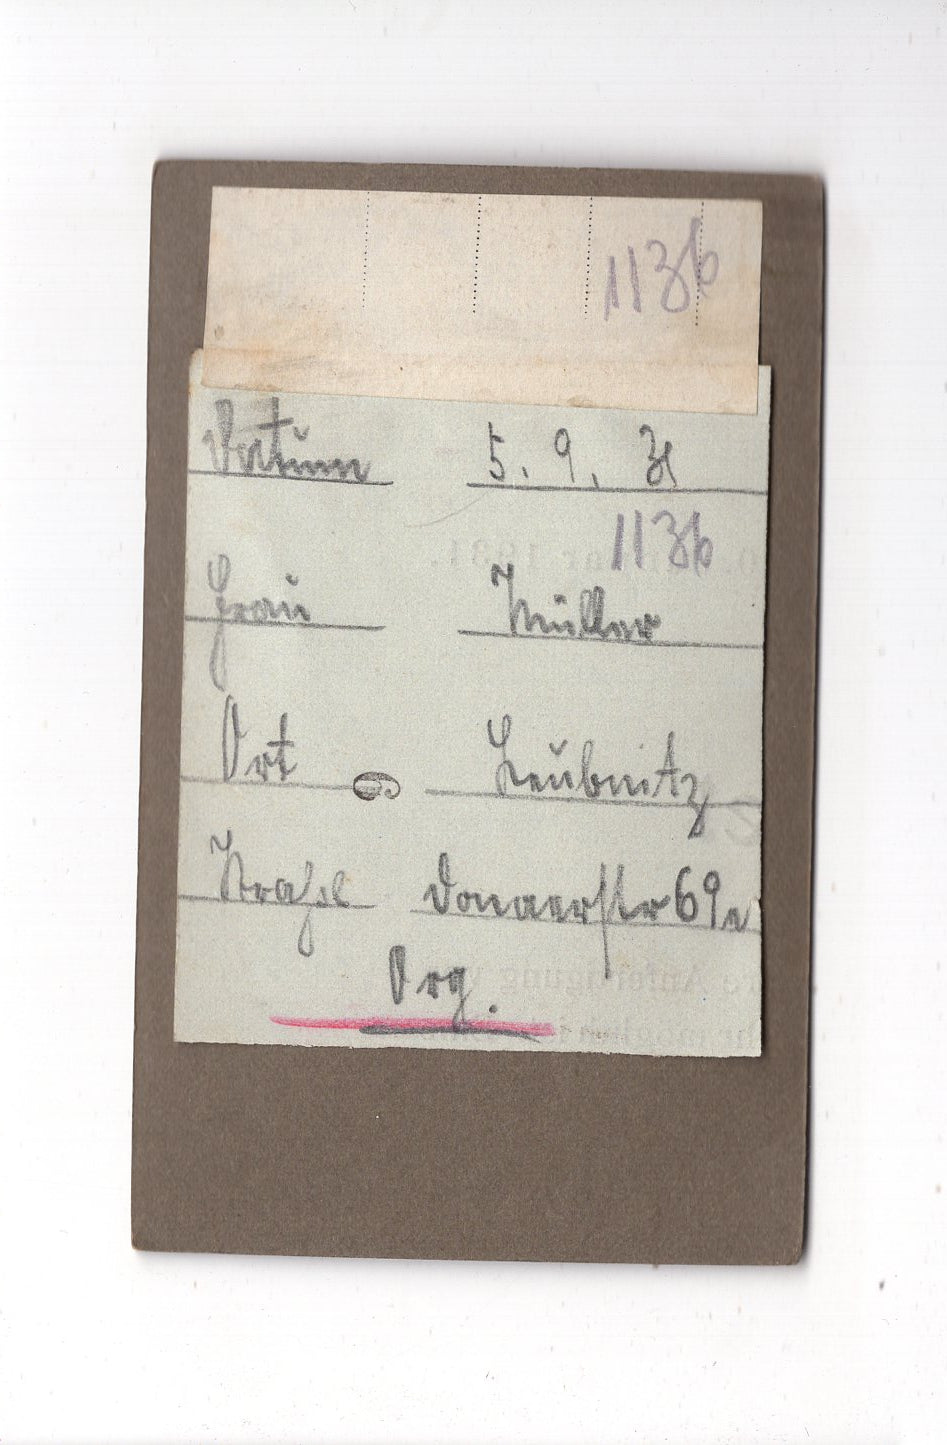 1136
Datum 5. 9. 31
1136
Frau Müller
Ort Leubnitz
6
Straße Donaerstr 69a
Org.